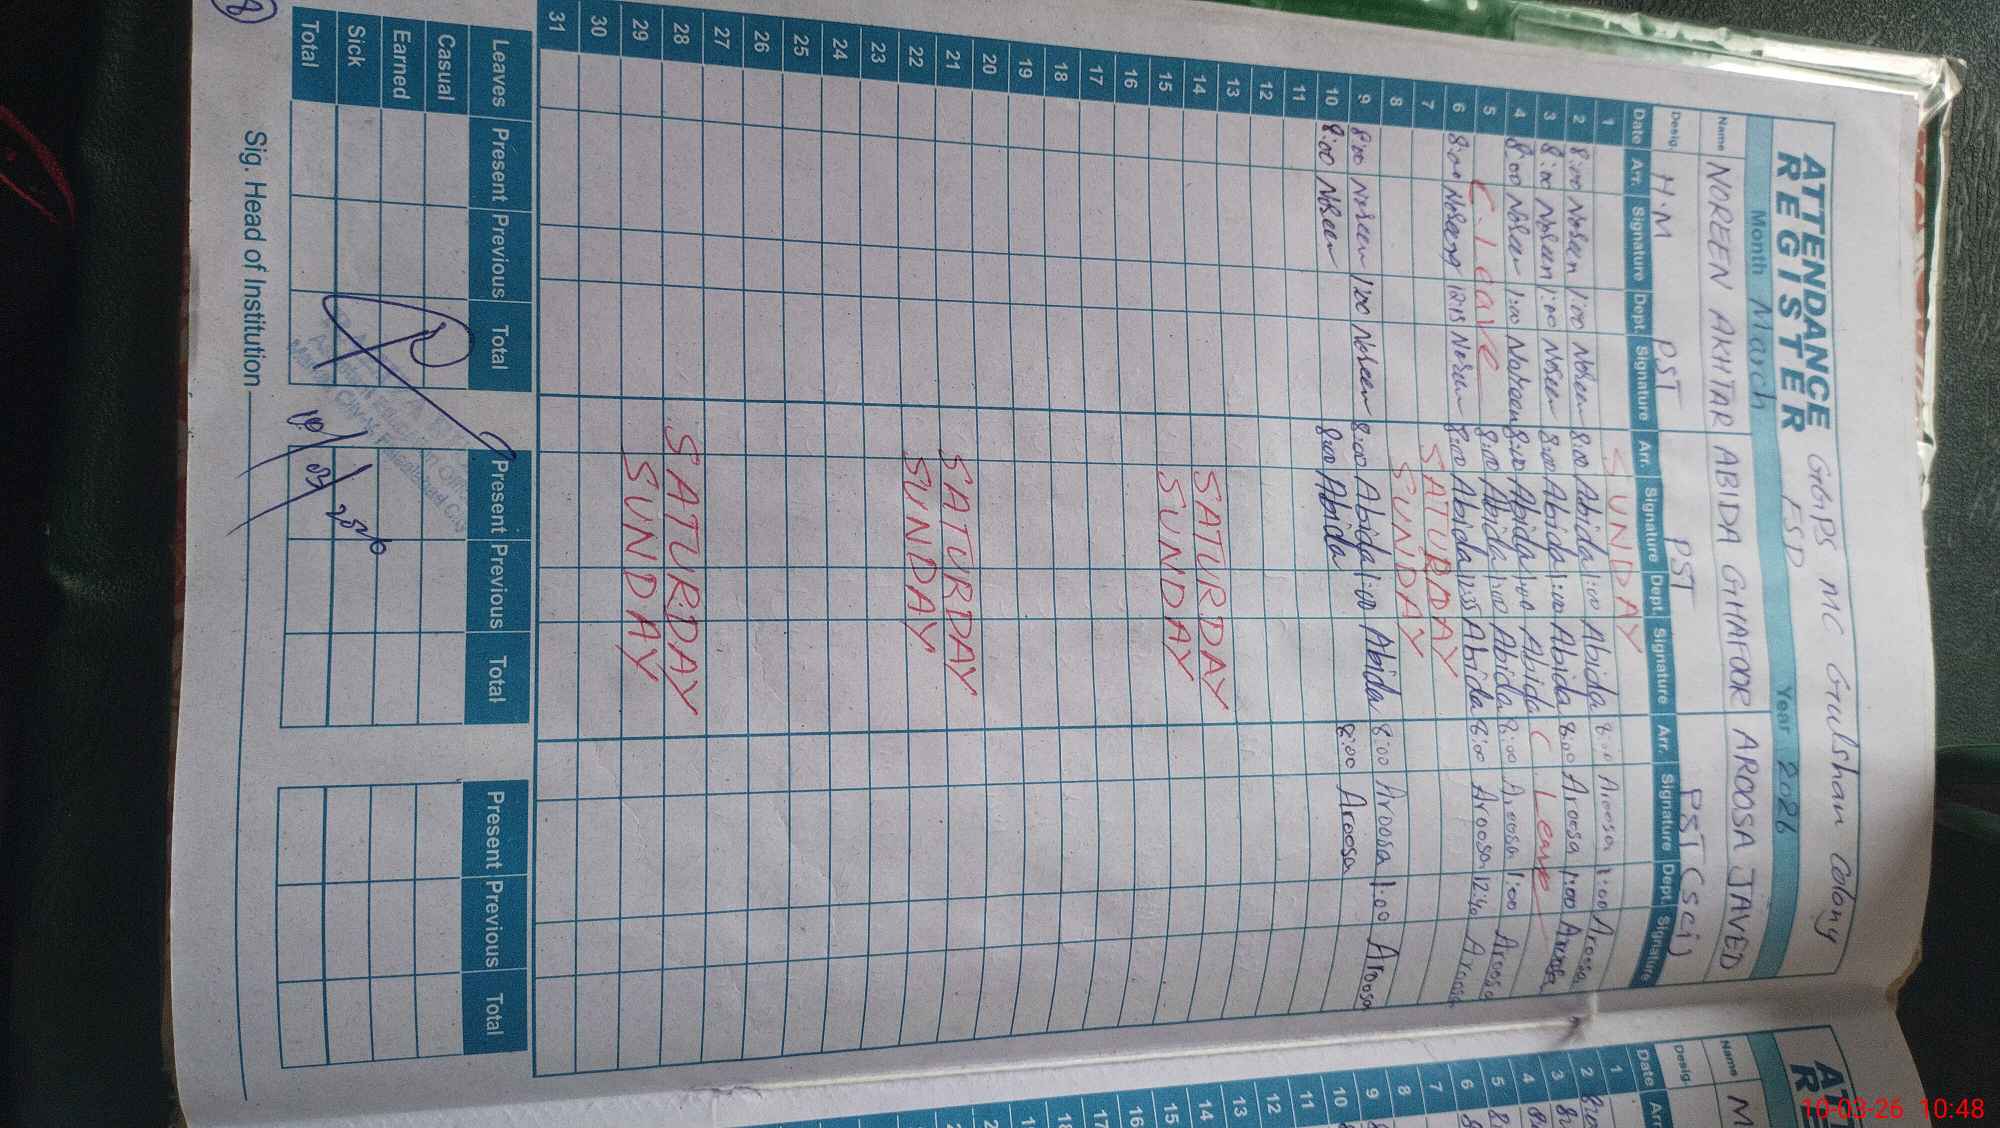 ATTENDANCE REGISTER
GGPS MC Gulshan Colony
FSD
Month March Year 2026
Name NOREEN AKHTAR ABIDA GHAFOOR AROOSA JAVED
Desig. H.M PST PST PST (Sci)
Date Arr. Signature Dept. Signature Arr. Signature Dept. Signature Arr. Signature Dept. Signature
1 SUNDAY
2 8:00 Noreen 1:00 Noreen 8:00 Abida 1:00 Abida 8:00 Aroosa 1:00 Aroosa
3 8:00 Noreen 1:00 Noreen 8:00 Abida 1:00 Abida 8:00 Aroosa 1:00 Aroosa
4 8:00 Noreen 1:00 Noreen 8:00 Abida 1:00 Abida C Leave
5 C. Leave 8:00 Abida 1:00 Abida 8:00 Aroosa 1:00 Aroosa
6 8:00 Noreen 12:15 Noreen 8:00 Abida 12:35 Abida 8:00 Aroosa 12:40 Aroosa
7 SATURDAY
8 SUNDAY
9 8:00 Noreen 1:00 Noreen 8:00 Abida 1:00 Abida 8:00 Aroosa 1:00 Aroosa
10 8:00 Noreen 8:00 Abida 8:00 Aroosa
11
12
13
14 SATURDAY
15 SUNDAY
16
17
18
19
20
21 SATURDAY
22 SUNDAY
23
24
25
26
27
28 SATURDAY
29 SUNDAY
30
31
Leaves Present Previous Total Present Previous Total Present Previous Total
Casual
Earned
Sick
Total
10/03/2026
Sig. Head of Institution
8
Name
Desig.
Date Arr
1
2
3
4
5
6
7
8
9
10
11
12
13
14
15
16
17
10-03-26 10:48